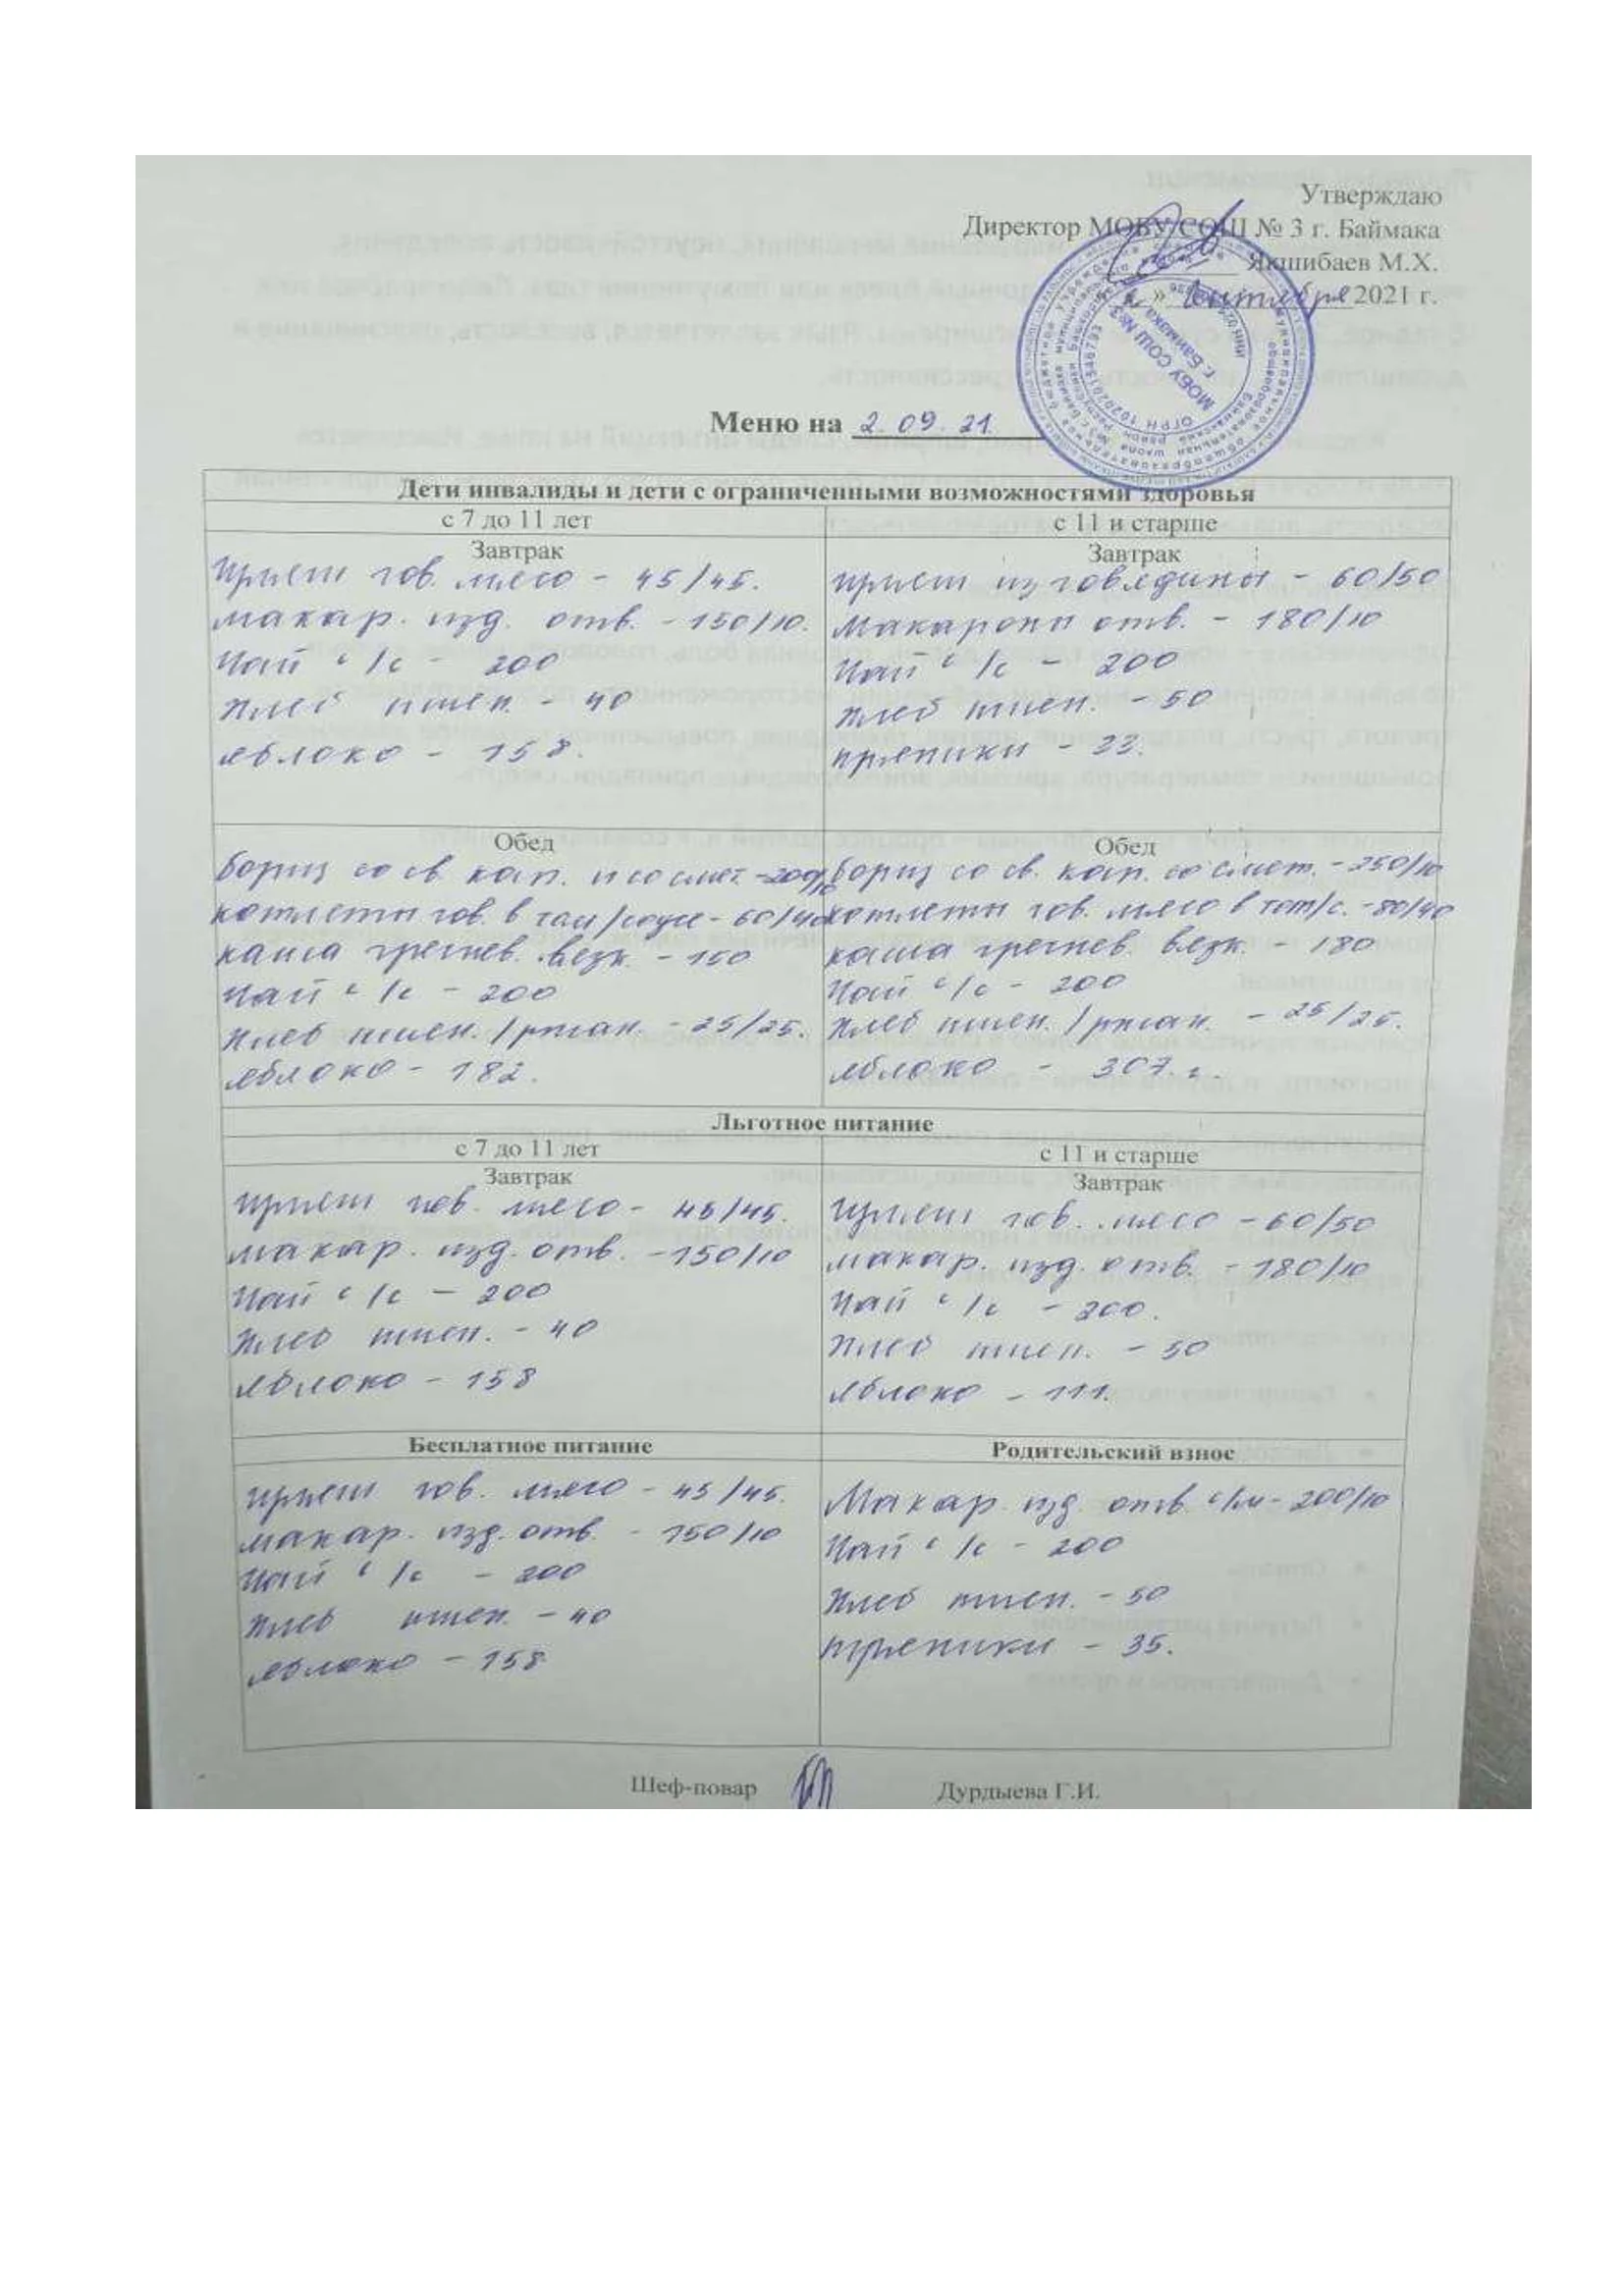 Утверждаю
Директор МОБУ СОШ № 3 г. Баймака
Якшибаев М.Х.
« 2 » сентября 2021 г.
МОБУ СОШ №3
г. Баймака
Меню на 2. 09. 21.
Дети инвалиды и дети с ограниченными возможностями здоровья
с 7 до 11 лет
Завтрак
гов. мясо - 45/45.
макар. изд. отв. - 150/10.
Чай с/с - 200
Хлеб пшен. - 40
яблоко - 158.
с 11 и старше
Завтрак
из говядины - 60/50
Макароны отв. - 180/10
Чай с/с - 200
Хлеб пшен. - 50
пряники - 22.
Обед
борщ со св. кап. и со смет. - 200/10
котлеты гов. в том/соусе - 60/40
каша гречнев. вязк. - 150
Чай с/с - 200
Хлеб пшен. / ржан. - 25/25.
яблоко - 182.
Обед
борщ со св. кап. со смет. - 250/10
котлеты гов. мясо в том/с. - 80/40
каша гречнев. вязк. - 180
Чай с/с - 200
Хлеб пшен. / ржан. - 25/25.
яблоко - 307 г.
Льготное питание
с 7 до 11 лет
Завтрак
гов. мясо - 45/45.
макар. изд. отв. - 150/10
Чай с/с - 200
Хлеб пшен. - 40
яблоко - 158
с 11 и старше
Завтрак
гов. мясо - 60/50
макар. изд. отв. - 180/10
Чай с/с - 200.
Хлеб пшен. - 50
яблоко - 111.
Бесплатное питание
гов. мясо - 45/45.
макар. изд. отв. - 150/10
Чай с/с - 200
Хлеб пшен. - 40
яблоко - 158
Родительский взнос
Макар. изд. отв. с/м - 200/10
Чай с/с - 200
Хлеб пшен. - 50
пряники - 35.
Шеф-повар Дурдыева Г.И.